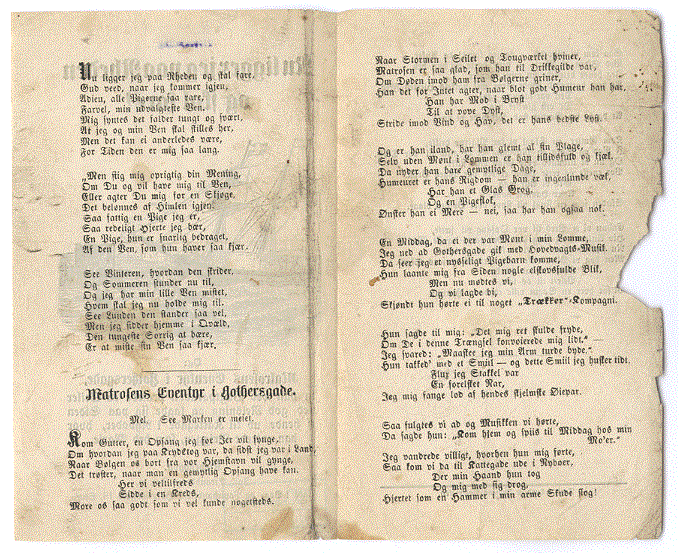 Nu ligger jeg paa Rheden og skal fare,
Gud veed, naar jeg kommer igjen,
Adieu, alle Pigerne saa rare,
Farvel, min udvalgteste Ven.
Mig syntes det falder tungt og svært,
At jeg og min Ven skal skilles her,
Men det kan ei anderledes være,
For Tiden den er mig saa lang.
„Men siig mig oprigtig din Mening,
Om Du og vil have mig til Ven,
Eller agter Du mig for en Skjøge,
Det belønnes af Himlen igjen.
Saa fattig en Pige jeg er,
Saa redeligt Hjerte jeg bær,
En Pige, hun er snarlig bedraget,
Af den Ven, som hun haver saa kjær.
See Vinteren, hvordan den strider,
Og Sommeren stunder nu til,
Og jeg har min lille Ven mistet,
Hvem skal jeg nu holde mig til.
See Lunden den stander saa vel,
Men jeg sidder hjemme i Qvæld,
Den tungeste Sorrig at bære,
Er at miste sin Ven saa kjær.
Matrosens Eventyr i Gothersgade.
Mel. See Marken er meiet.
Kom Gutter, en Opsang jeg for Jer vil synge,
Om hvordan jeg paa Krydstog var, da sidst jeg var i Land,
Naar Bølgen os bort fra vor Hjemstavn vil gynge,
Det trøster, naar man en gemytlig Opsang have kan.
Her vi veltilfreds
Sidde i en Kreds,
More os saa godt som vi vel kunde nogetsteds.
Naar Stormen i Seilet og Tougværket hviner,
Matrosen er saa glad, som han til Drikkegilde var,
Om Døden imod ham fra Bølgerne griner,
Han det for Intet agter, naar blot godt Humeur han har.
Han har Mod i Bryst
Til at vove Dyst,
Stride imod Vind og Hav, det er hans bedste Lyst.
Og er han iland, har han glemt al sin Plage,
Selv uden Mønt i Lommen er han tillidsfuld og kjæk.
Da nyder han bare gemytlige Dage,
Humeuret er hans Rigdom — han er ingenlunde væk,
Har han et Glas Grog,
Og en Pigeflok,
Ønsker han ei Mere — nei, saa har han ogsaa nok.
En Middag, da ei der var Mønt i min Lomme,
Jeg ned ad Gothersgade gik med Hovedvagts-Musik.
Da seer jeg et nysseligt Pigebarn komme,
Hun laante mig fra Siden nogle elskovsfulde Blik,
Men nu mødtes vi,
Og vi lagde bi,
Skjøndt hun hørte ei til noget „Trækker“-Kompagni.
Hun sagde til mig: „Det mig ret skulde fryde,
Om De i denne Trængsel konvoierede mig lidt.“
Jeg svared: „Maaskee jeg min Arm turde byde.“
Hun takked' med et Smiil — og dette Smiil jeg husker tidt.
Flux jeg Stakkel var
En forelsket Nar,
Jeg mig fange lod af hendes skjelmske Øiepar.
Saa fulgtes vi ad og Musikken vi hørte,
Da sagde hun: „Kom hjem og spiis til Middag hos min
Mo'er.“
Jeg vandrede villigt, hvorhen hun mig førte,
Saa kom vi da til Kattegade ude i Nyboer,
Der min Haand hun tog
Og mig med sig drog,
Hjertet som en Hammer i min arme Skude slog!